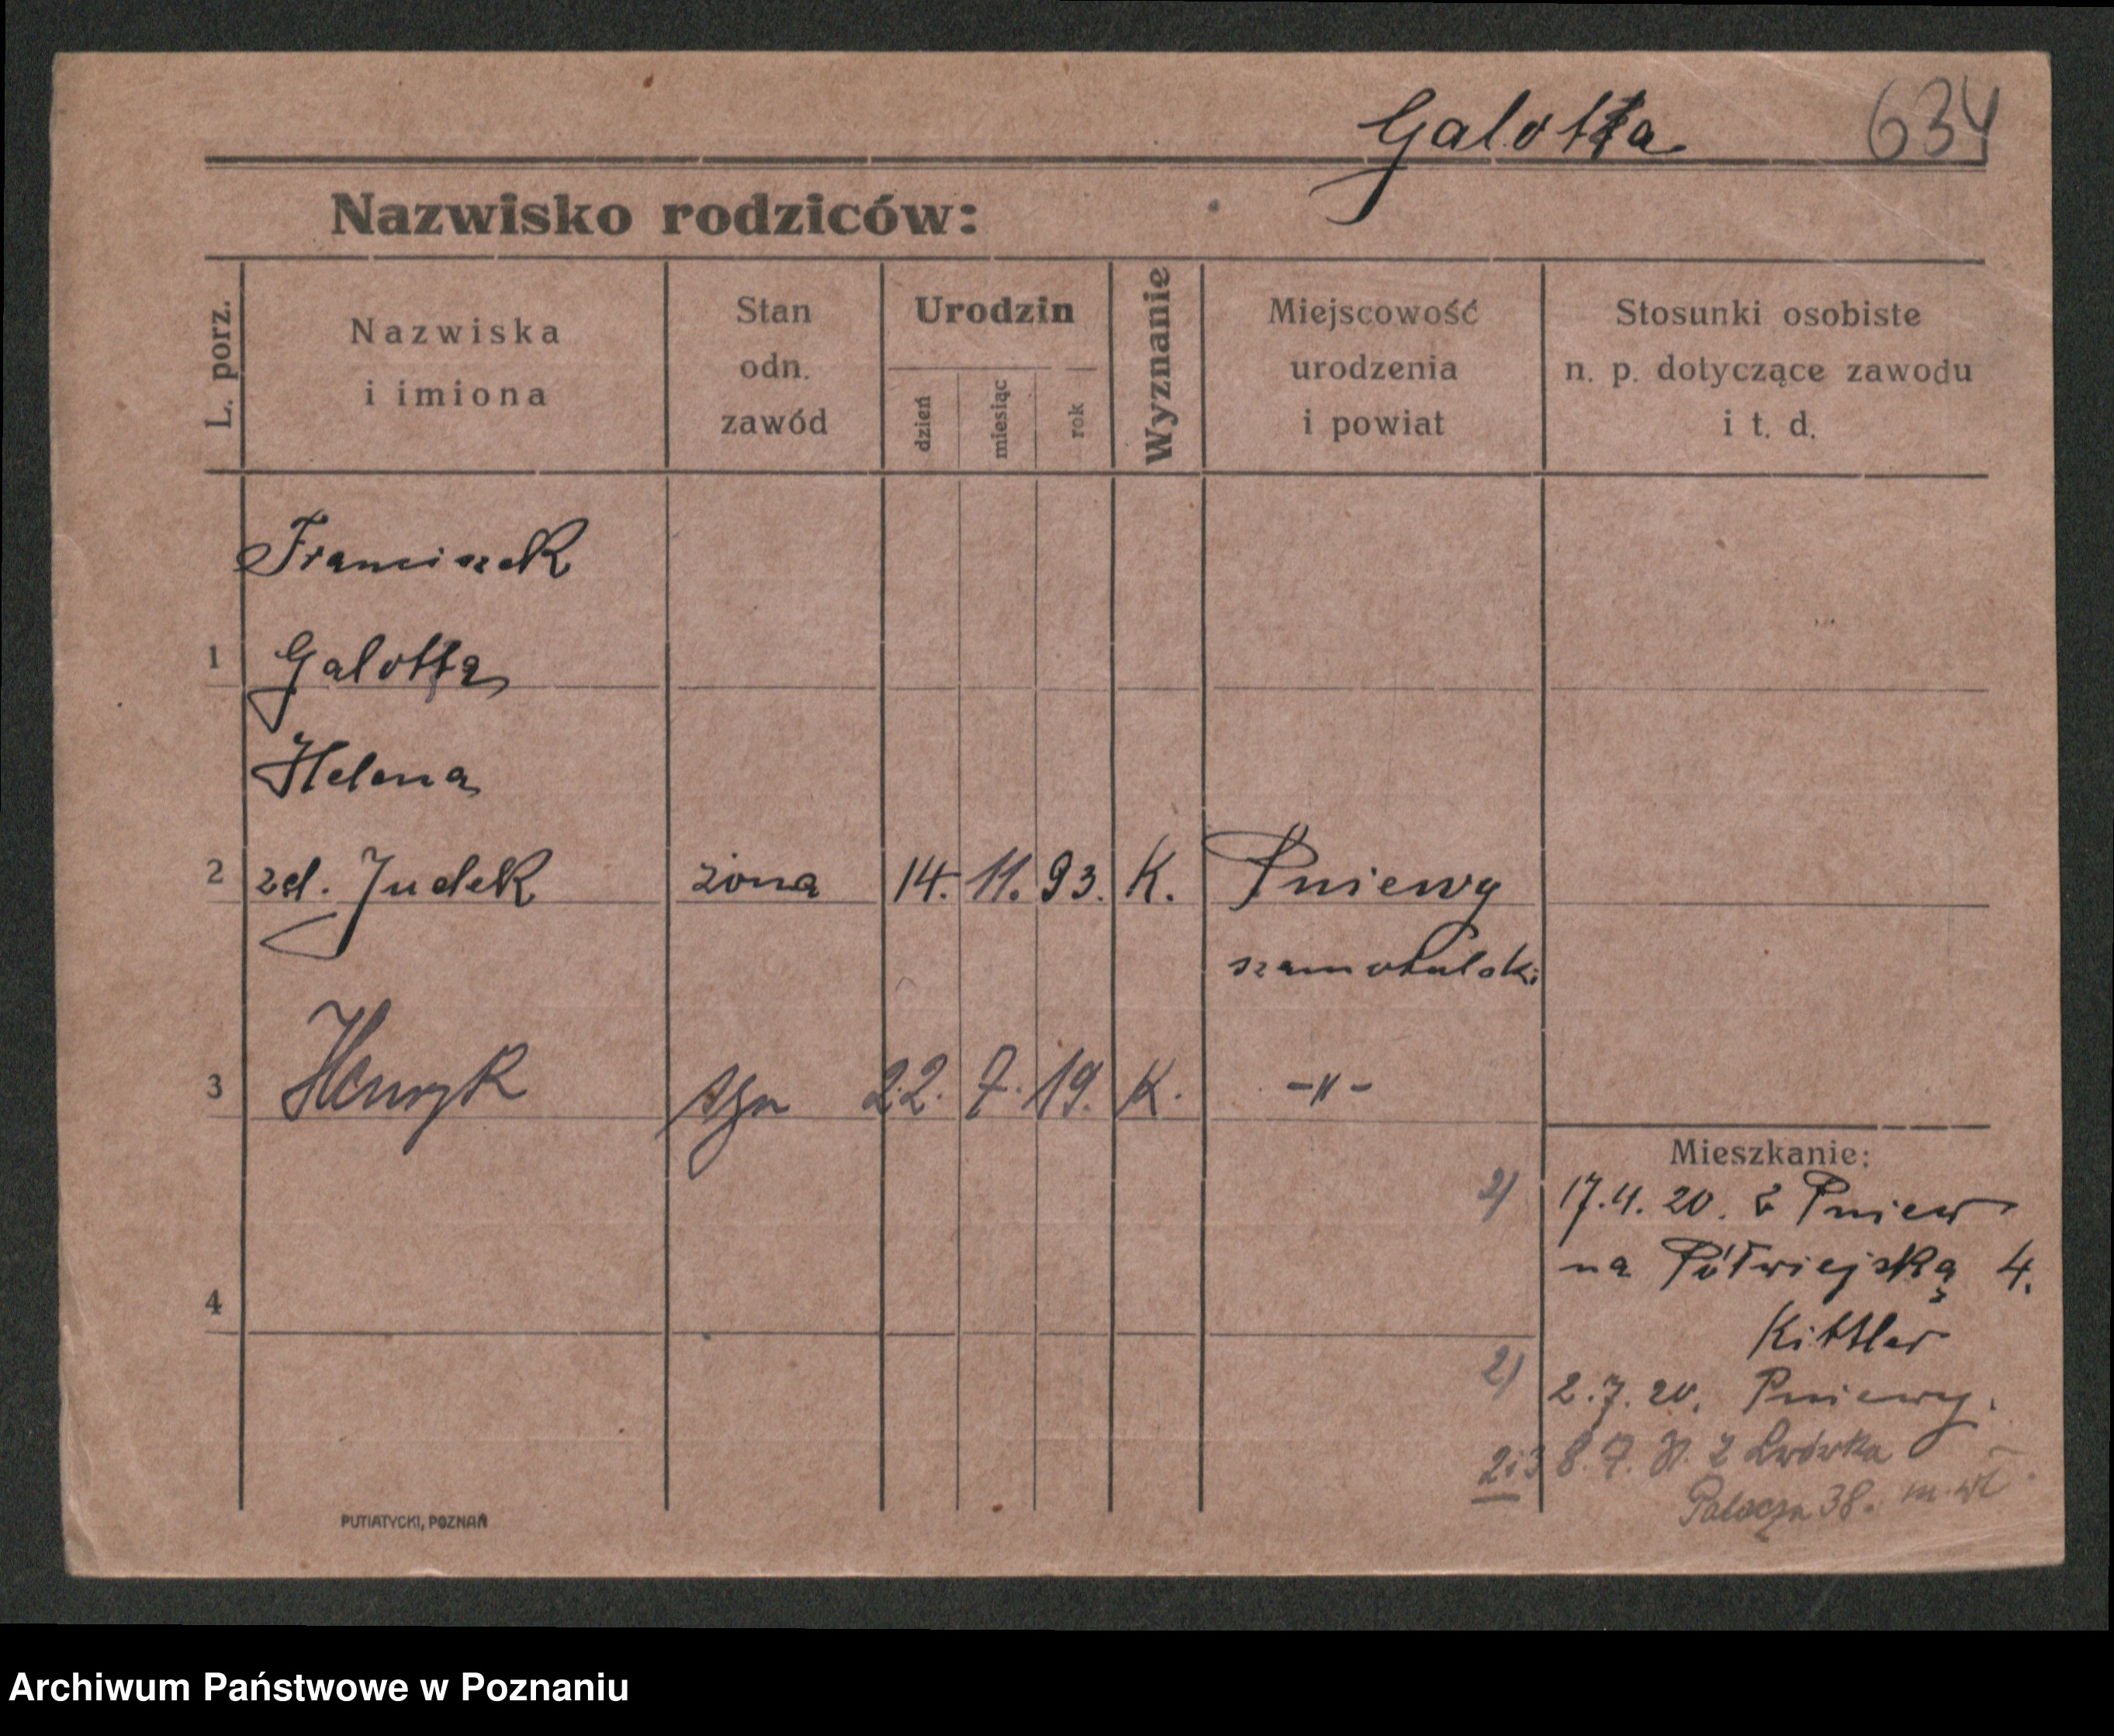 Galotta
634
Nazwisko rodziców:
L. porz.
Nazwiska
i imiona
Stan
odn.
zawód
Urodzin
dzień
miesiąc
rok
Wyznanie
Miejscowość
urodzenia
i powiat
Stosunki osobiste
n. p. dotyczące zawodu
i t. d.
Franciszek
1 Galotta
Helena
2 zd. Judek żona 14. 11. 93. K. Pniewy
szamotulski
3 Henryk syn 22. 7. 19. K. -"-
Mieszkanie:
2) 17.4.20. z Pniew
na Półwiejską 4.
4
Kittler
2) 2.7.20. Pniewy.
2i3 8. 7. z Lwówka
38.
PUTIATYCKI, POZNAŃ
Archiwum Państwowe w Poznaniu